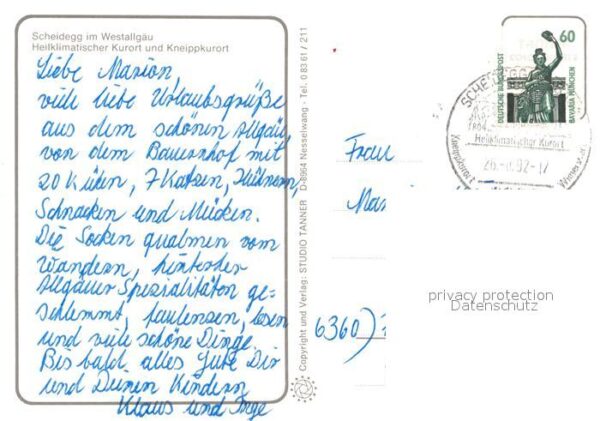 Scheidegg im Westallgäu
Heilklimatischer Kurort und Kneippkurort
Liebe Marion,
viele liebe Urlaubsgrüße
aus dem schönen Allgäu,
von dem Bauernhof mit
20 Kühen, 7 Katzen, Hühnern,
Schnacken und Mücken.
Die Socken qualmen vom
Wandern, hinterher
Allgäuer Spezialitäten ge-
schlemmt, faulenzen, lesen
und viele schöne Dinge.
Bis bald alles Gute Dir
und Deinen Kindern
Klaus und Inge
Copyright und Verlag: STUDIO TANNER · D-8964 Nesselwang · Tel. 0 83 61 / 211
60
DEUTSCHE BUNDESPOST
BAVARIA MÜNCHEN
Heilklimatischer Kurort
92-17
Frau
Mar
6360)
privacy protection
Datenschutz